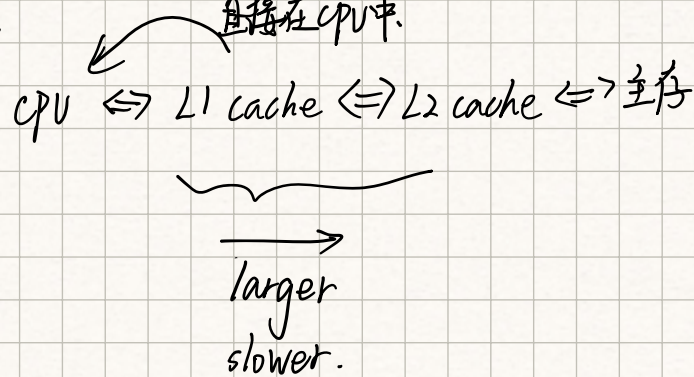 直接在CPU中.
CPU <=> L1 cache <=> L2 cache <=> 主存
larger
slower.